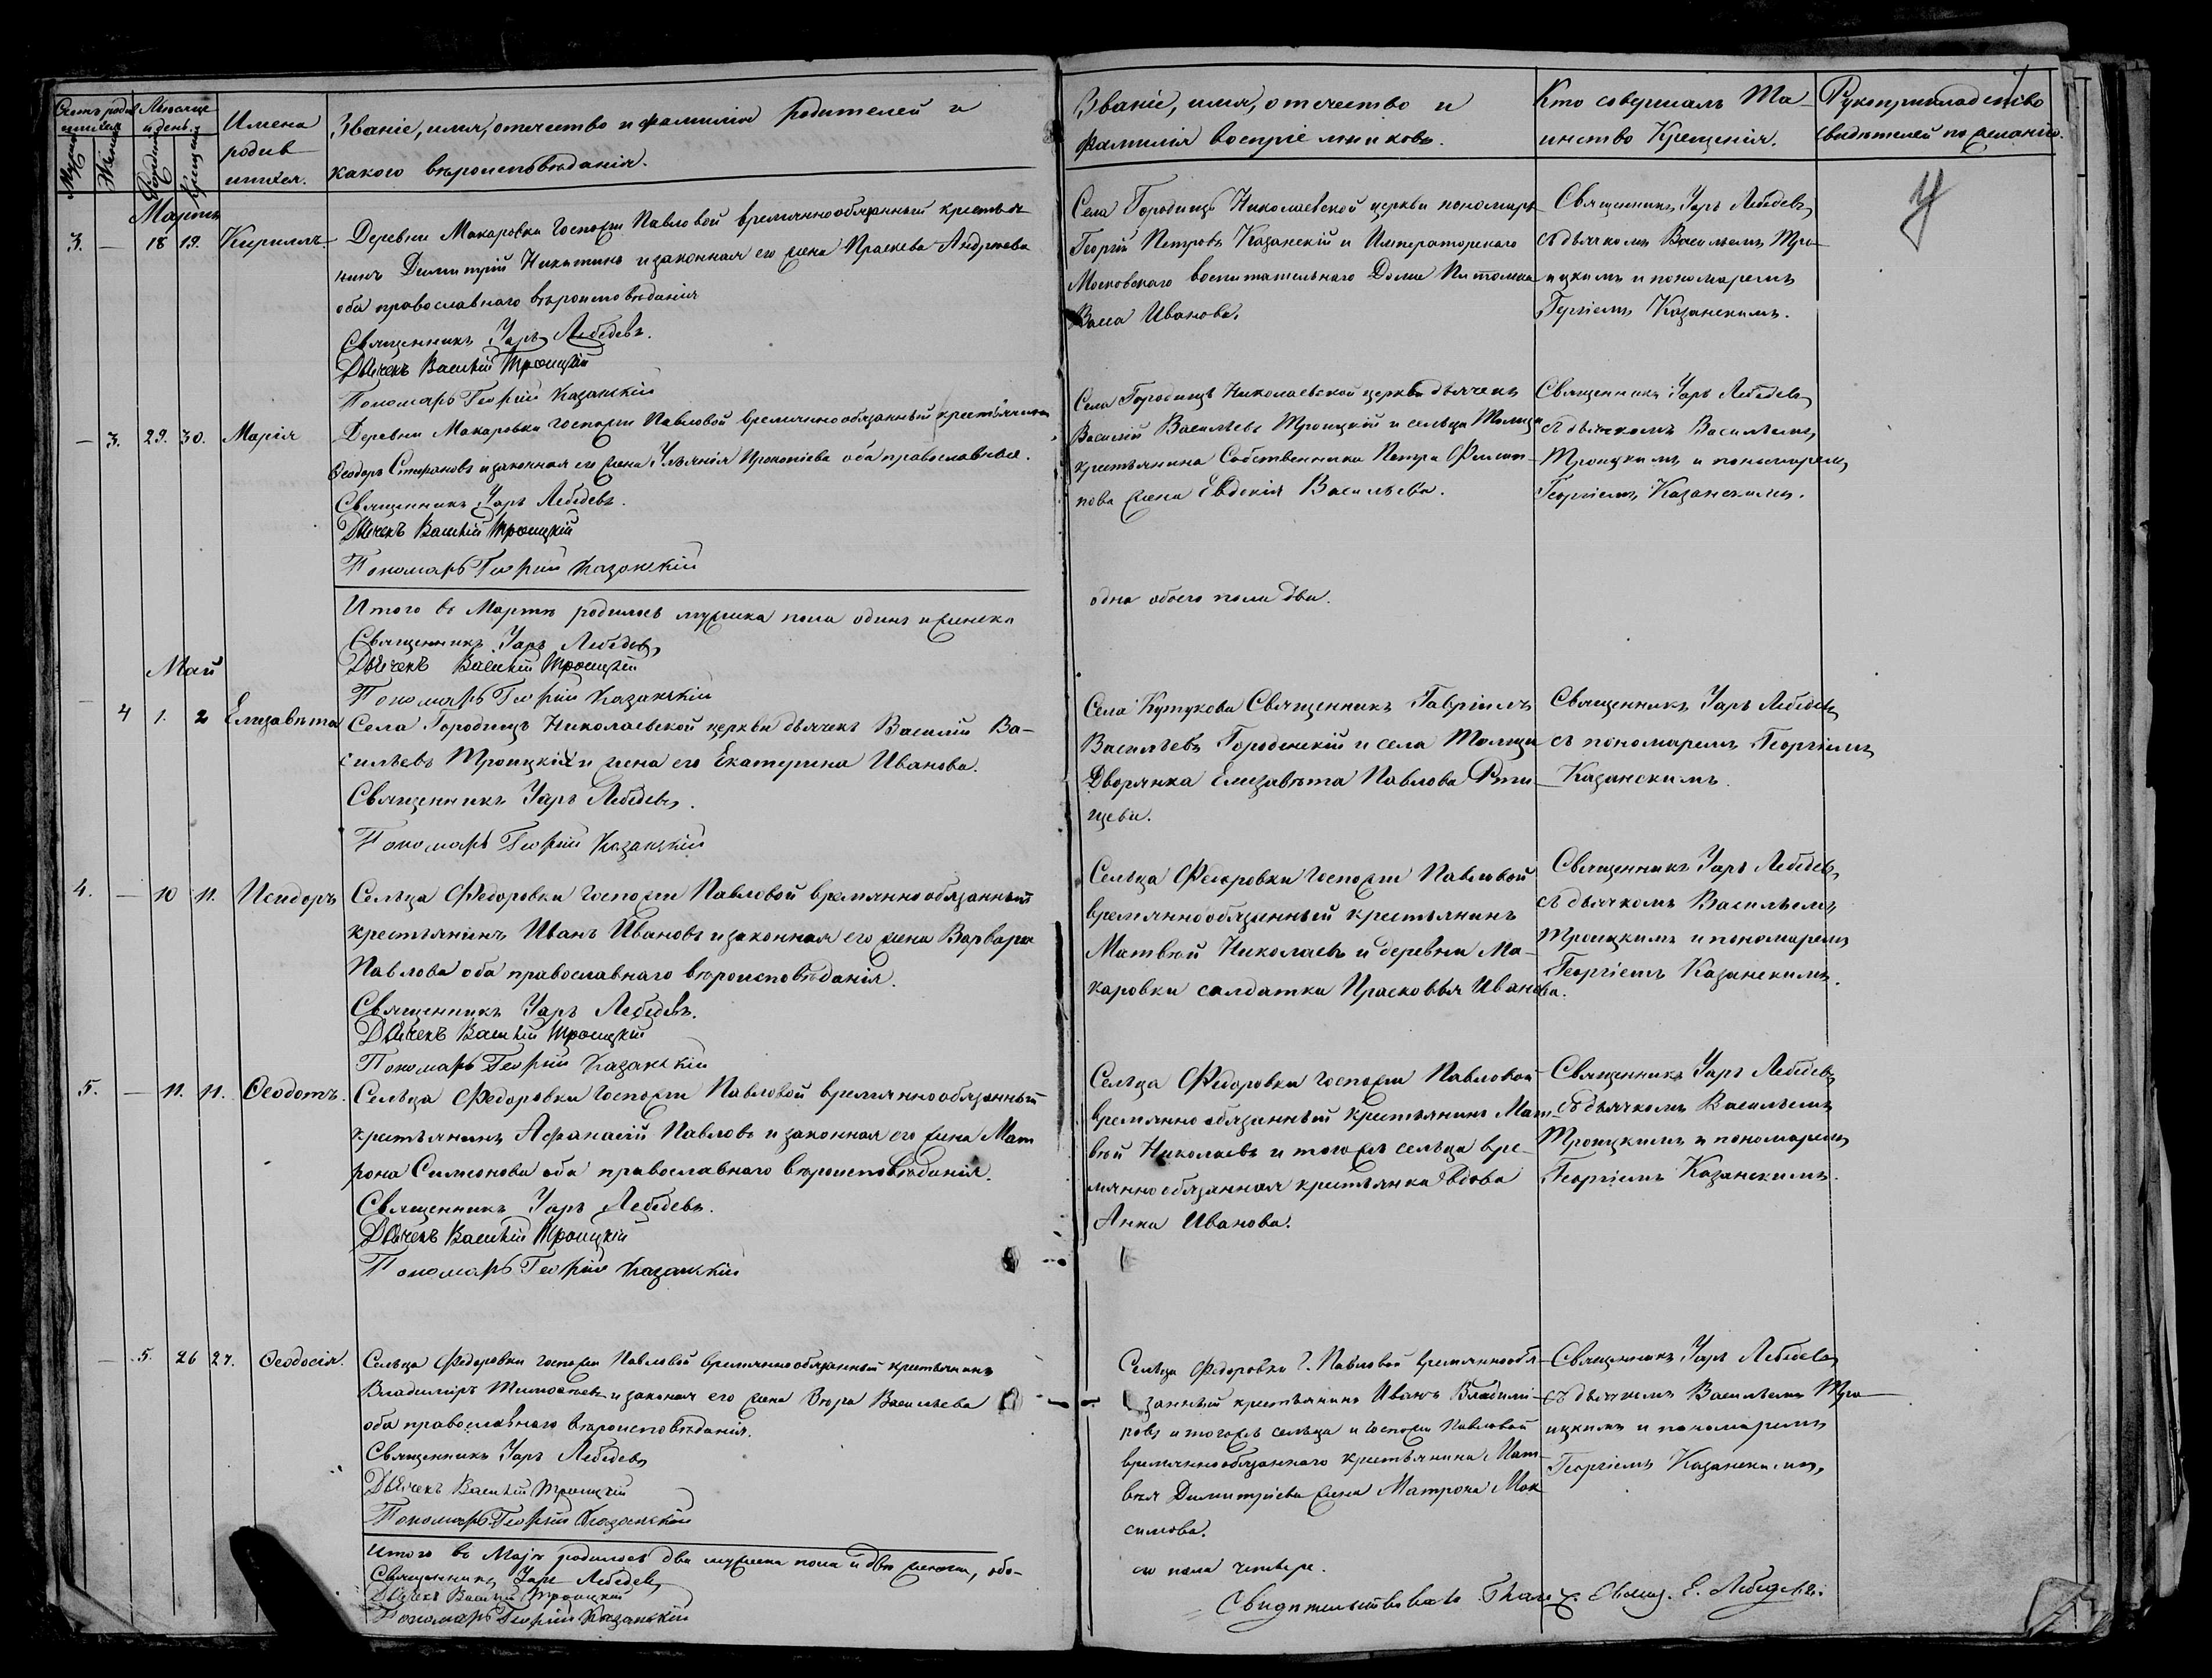 Счетъ родившихся
Мужска
Женска
Мѣсяцъ и день.
Рожденія
Крещенія
Имена
родив
шихся.
Званіе, имя, отчество и фамилія родителей и
какого вѣроисповѣданія.
Званіе, имя, отчество и
фамилія воспріемниковъ.
Кто совершалъ Та
инство Крещенія.
Рукоприкладство
свидѣтелей по желанію.
Мартъ
3. — 18 19. Кириллъ.
Деревни Макаровки Госпожи Павловой временнообязанный крестья
нинъ Димитрій Никитинъ и законная его жена Праскева Андреева
оба православнаго вѣроисповѣданія
Священникъ Уаръ Лебедевъ.
Дьячекъ Василій Троицкій
Пономарь Георгій Казанскій
Села Городищъ Николаевской церкви пономарь
Георгій Петровъ Казанскій и Императорскаго
Московскаго воспитательнаго Дома Питомка
Васса Иванова.
Священникъ Уаръ Лебедевъ
съ дьячкомъ Васильемъ Тро—
ицкимъ и пономаремъ
Гергіемъ Казанскимъ.
— 3. 29. 30. Марія
Деревни Макаровки госпожи Павловой временнообязанный крестьянинъ
Ѳеодоръ Стефановъ и законная его жена Ульянія Прокопіева оба православные.
Священникъ Уаръ Лебедевъ.
Дьячекъ Василій Троицкій
Пономарь Георгій Казанскій
Села Городищъ Николаевской церкви дьячекъ
Василій Васильевъ Троицкій и сельца
крестьянина Собственника Петра Филип—
пова жена Евдокія Васильева.
Священникъ Уаръ Лебедевъ
съ дьячкомъ Васильемъ
Троицкимъ и пономаремъ
Георгіемъ Казанскимъ.
Итого въ Мартѣ родилось мужска пола одинъ и женска
одна обоего пола два.
Священникъ Уаръ Лебедевъ
Дьячекъ Василій Троицкій
Пономарь Георгій Казанскій
Май
— 4 1. 2 Елизавѣта
Села Городищъ Николаевской церкви дьячекъ Василій Ва—
сильевъ Троицкій и жена его Екатерина Иванова.
Священникъ Уаръ Лебедевъ.
Пономарь Георгій Казанскій
Села Кутукова Священникъ Гавріилъ
Васильевъ Городенскій и села
Дворянка Елизавѣта Павлова Рти—
щева.
Священникъ Уаръ Лебедевъ
съ пономаремъ Георгіемъ
Казанскимъ.
4. — 10 11. Исидоръ
Сельца Федоровки Госпожи Павловой временнообязанный
крестьянинъ Иванъ Ивановъ и законная его жена Варвара
Павлова оба православнаго вѣроисповѣданія.
Священникъ Уаръ Лебедевъ.
Дьячекъ Василій Троицкій
Пономарь Георгій Казанскій
Сельца Федоровки Госпожи Павловой
временнообязанный крестьянинъ
Матвѣй Николаевъ и деревни Ма—
каровки салдатка Прасковья Иванова.
Священникъ Уаръ Лебедевъ,
съ дьячкомъ Васильемъ
Троицкимъ и пономаремъ
Георгіемъ Казанскимъ.
5. — 11. 11. Ѳеодотъ.
Сельца Федоровки Госпожи Павловой временнообязанный
крестьянинъ Афанасій Павловъ и законная его жена Мат
рона Симеонова оба православнаго вѣроисповѣданія.
Священникъ Уаръ Лебедевъ.
Дьячекъ Василій Троицкій
Пономарь Георгій Казанскій
Сельца Федоровки Госпожи Павловой
временно обязанный крестьянинъ Мат—
вѣй Николаевъ и тогожъ сельца вре—
менно обязанная крестьянка вдова
Анна Иванова.
Священникъ Уаръ Лебедевъ
съ дьячкомъ Васильемъ
Троицкимъ и пономаремъ
Георгіемъ Казанскимъ.
— 5. 26 27. Ѳеодосія.
Сельца Федоровки госпожи Павловой временнообязанный крестьянинъ
Владиміръ Тимоѳеевъ и законная его жена Вѣра Васильева
оба православнаго вѣроисповѣданія.
Священникъ Уаръ Лебедевъ
Дьячекъ Василій Троицкій
Пономарь Георгій Казанскій
Сельца Федоровки Г. Павловой временнообя—
занный крестьянинъ Иванъ Владимі—
ровъ и тогожъ сельца и Госпожи Павловой
временнообязаннаго крестьянина Мат—
вѣя Димитріева жена Матрона Мак
симова.
Священникъ Уаръ Лебедевъ
съ дьячкомъ Васильемъ Тро—
ицкимъ и пономаремъ
Георгіемъ Казанскимъ.
Итого въ Маѣ родилось два мужеска пола и двѣ женска, обо—
го пола четыре.
Священникъ Уаръ Лебедевъ
Дьячекъ Василій Троицкій
Пономарь Георгій Казанскій
Свидѣтельствовалъ Е. Лебедевъ.